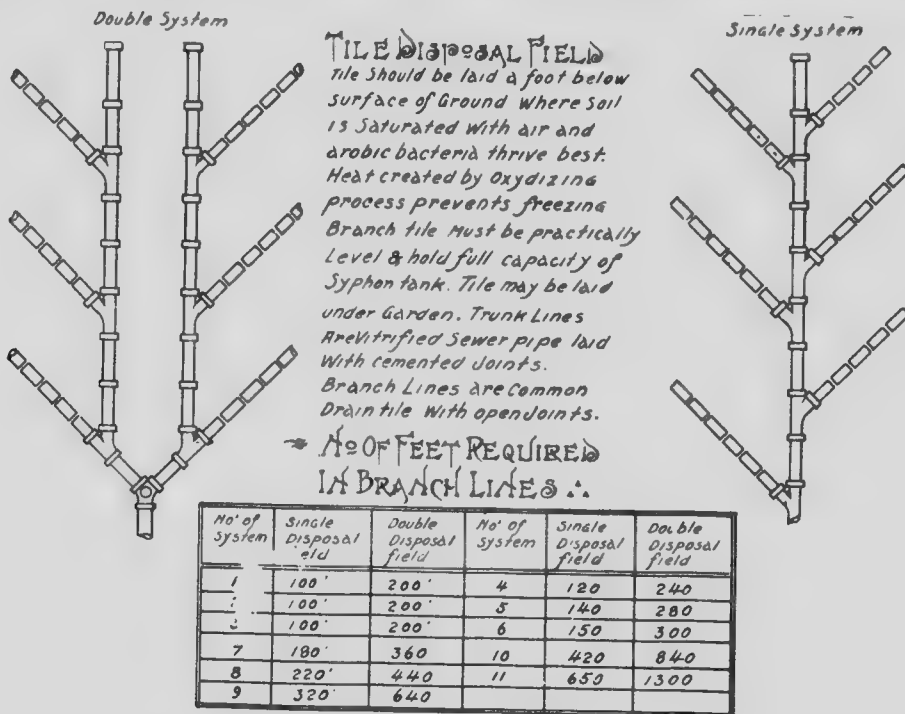 Double System
Single System
TILE DISPOSAL FIELD
Tile Should be laid a foot below
surface of Ground Where Soil
is Saturated With air and
arobic bacteria thrive best.
Heat created by Oxydizing
process prevents freezing
Branch tile Must be practically
Level & hold full capacity of
Syphon tank. Tile may be laid
under Garden. Trunk Lines
Are Vitrified Sewer pipe laid
With cemented Joints.
Branch Lines are Common
Drain tile With open Joints.
No OF FEET REQUIRED
IN BRANCH LINES
No' of System Single Disposal ield Double Disposal field No' of System Single Disposal field Double Disposal field
1 100' 200' 4 120 240
100' 200' 5 140 280
100' 200' 6 150 300
7 180' 360 10 420 840
8 220' 440 11 650 1300
9 320' 640